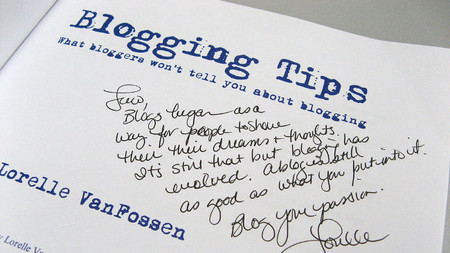 Blogging Tips
What bloggers won't tell you about blogging
Blogs began as a
way for people to share
their their dreams & thoughts.
It's still that but blogging has
evolved. A blog is still
as good as what you put into it.
Blog your passion.
Lorelle
Lorelle VanFossen
Lorelle